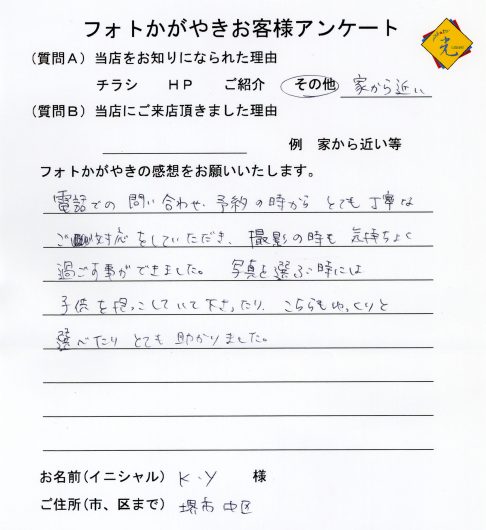 フォトかがやきお客様アンケート
(質問A)当店をお知りになられた理由
チラシ　HP　ご紹介　その他　家から近い
(質問B)当店にご来店頂きました理由
例　家から近い等
フォトかがやきの感想をお願いいたします。
電話での問い合わせ、予約の時からとても丁寧な
ご対応をしていただき、撮影の時も気持ちよく
過ごす事ができました。写真を選ぶ時には
子供を抱っこしていて下さったり、こちらもゆっくりと
選べたりとても助かりました。
お名前(イニシャル)　K.Y　様
ご住所(市、区まで)　堺市中区
光